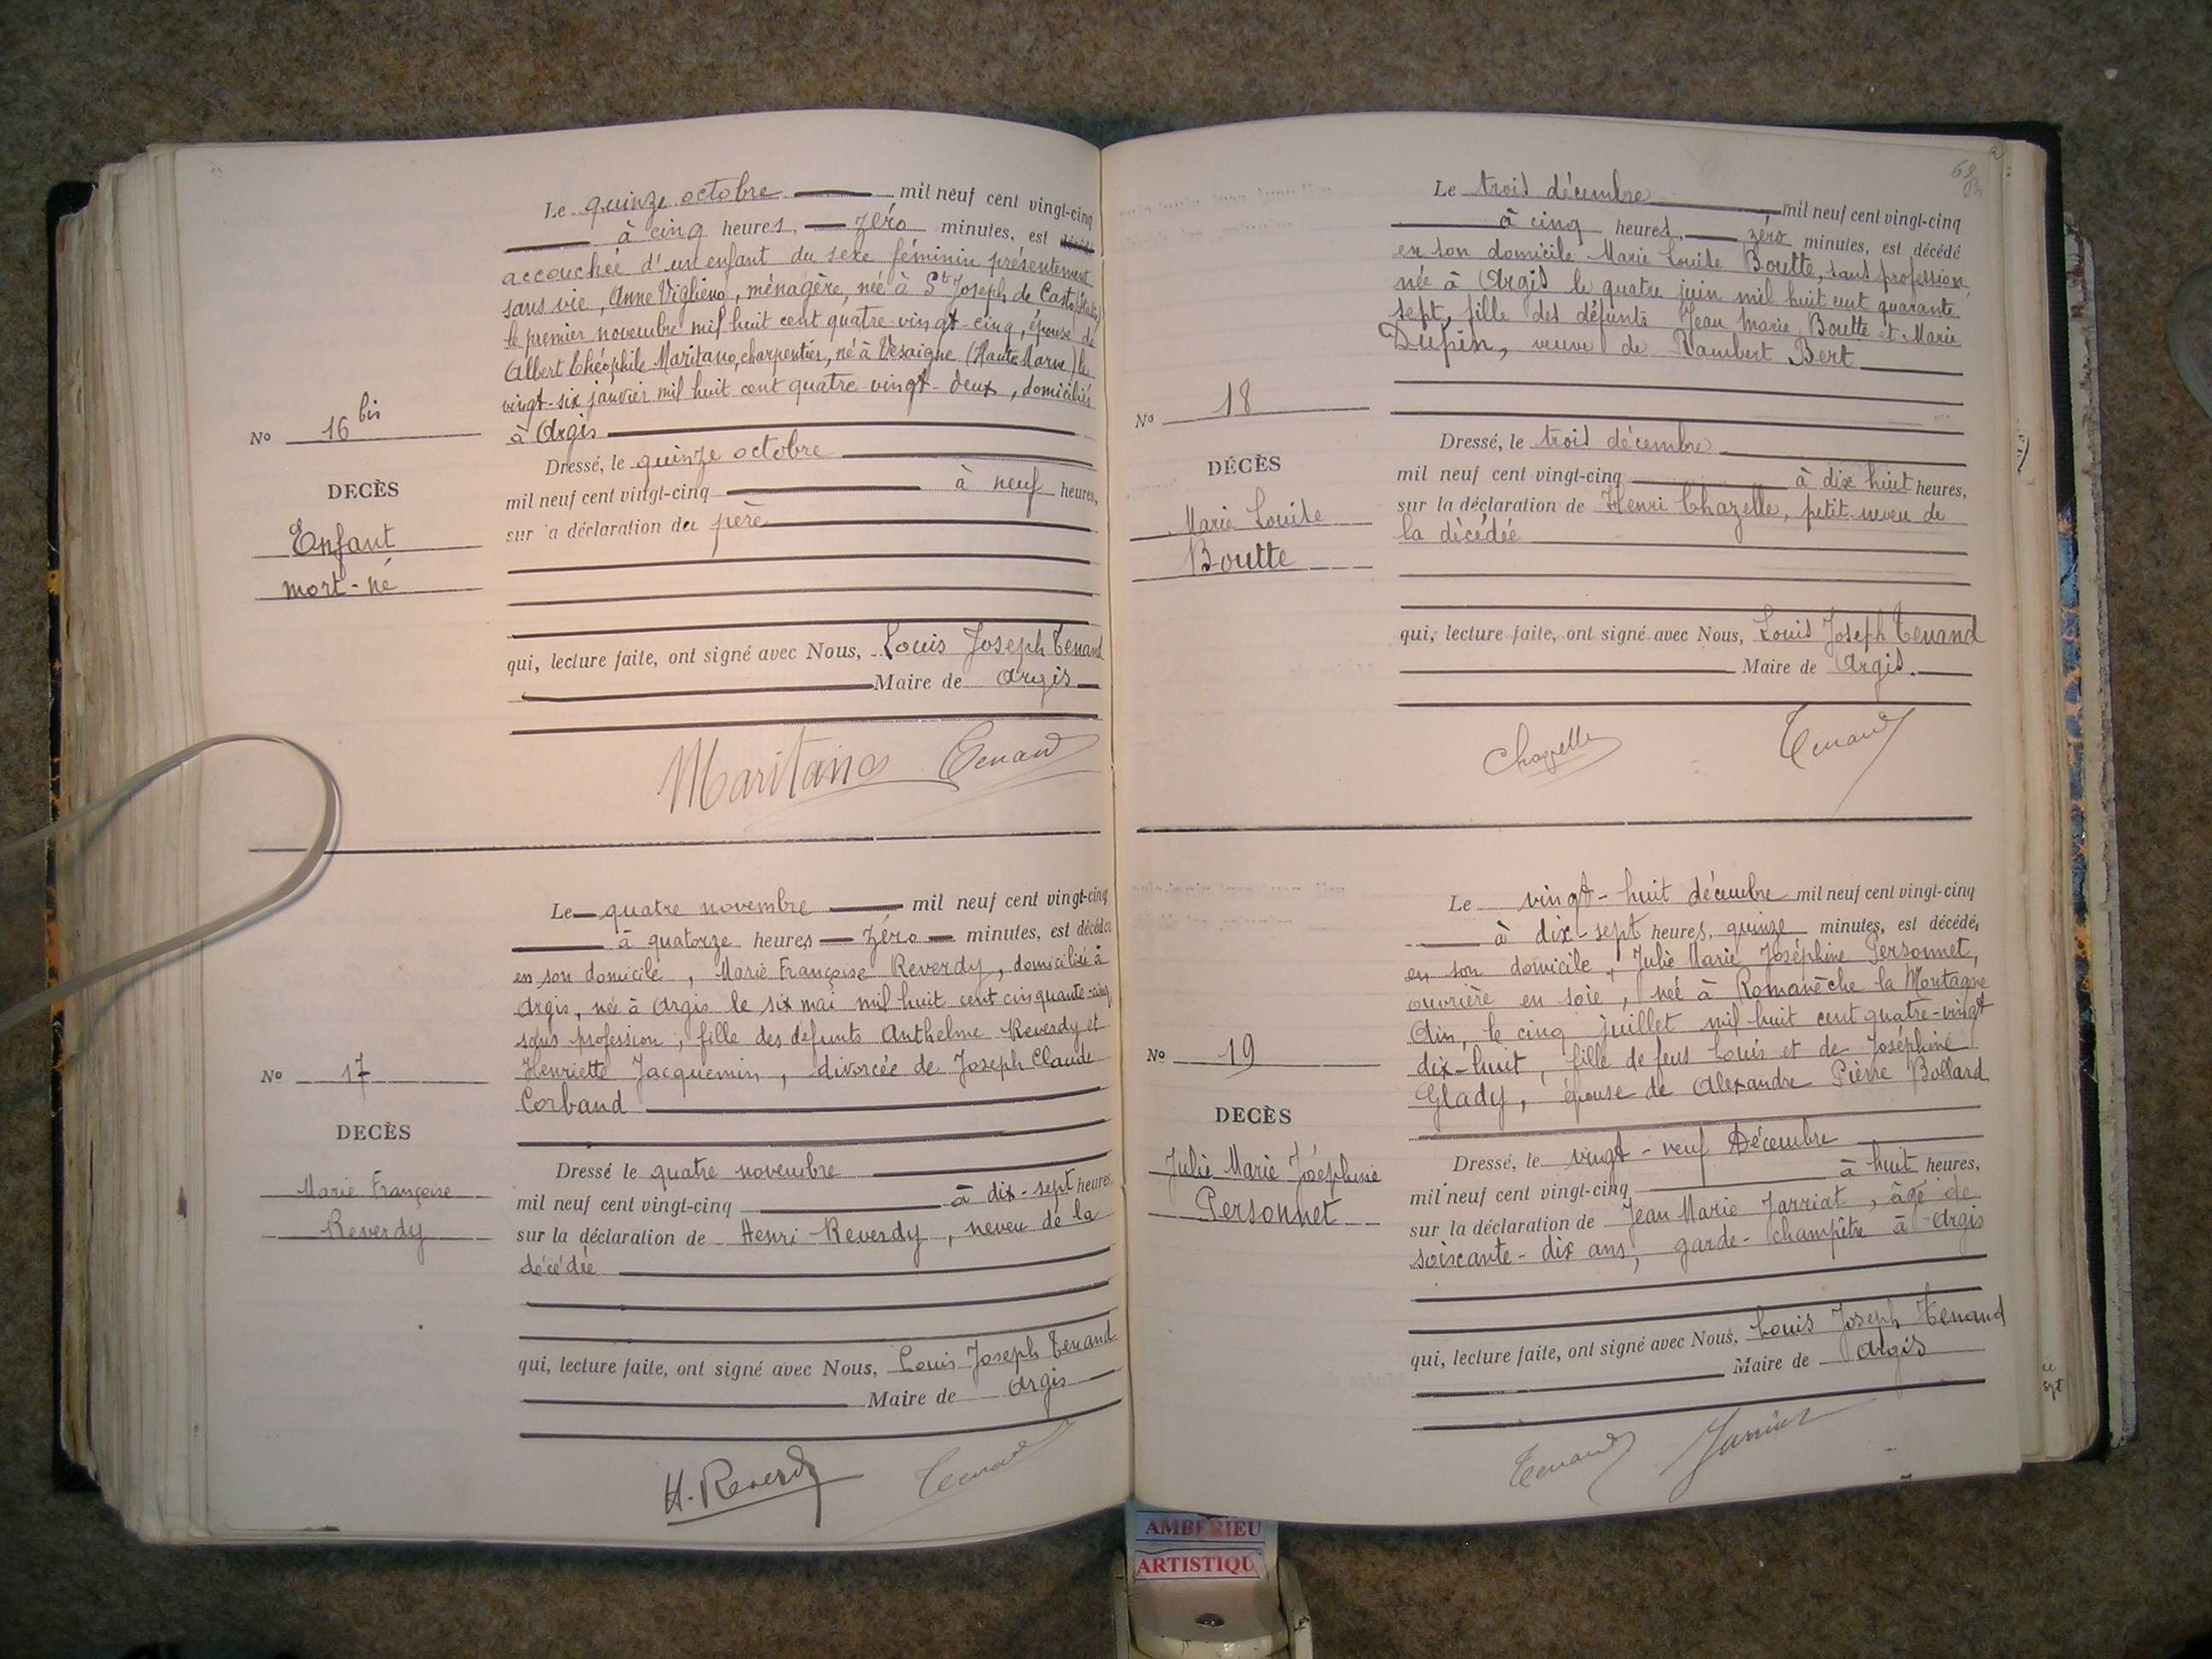 Le quinze octobre mil neuf cent vingt-cinq
à cinq heures, zéro minutes, est décédé
accouchée d'un enfant du sexe féminin présentement
sans vie, Anne Viglieno, ménagère, née à St Joseph de Casto (Italie)
le premier novembre mil huit cent quatre-vingt-cinq, épouse de
Albert Théophile Maritano, charpentier, né à Vesaigne (Haute Marne) le
vingt-six janvier mil huit cent quatre vingt-deux, domiciliés
à Argis
No 16 bis
DECÈS
Enfant
mort-né
Dressé, le quinze octobre
mil neuf cent vingt-cinq à neuf heures,
sur a déclaration du père
qui, lecture faite, ont signé avec Nous, Louis Joseph Tenand
Maire de Argis
Maritano Tenand
Le quatre novembre mil neuf cent vingt-cinq
à quatorze heures zéro minutes, est décédée
en son domicile, Marie Françoise Reverdy, domiciliée à
Argis, née à Argis le six mai mil huit cent cinquante-cinq
sans profession, fille des défunts Anthelme Reverdy et
Henriette Jacquemin, divorcée de Joseph Claude
Corband
No 17
DECÈS
Marie Françoise
Reverdy
Dressé le quatre novembre
mil neuf cent vingt-cinq à dix-sept heures
sur la déclaration de Henri Reverdy, neveu de la
décédée
qui, lecture faite, ont signé avec Nous, Louis Joseph Tenand
Maire de Argis
H. Reverdy Tenand
Le trois décembre, mil neuf cent vingt-cinq
à cinq heures, zéro minutes, est décédé
en son domicile Marie Louise Boutte, sans profession,
née à Argis le quatre juin mil huit cent quarante
sept, fille des défunts Jean Marie Boutte et Marie
Dupin, veuve de Rambert Bert
No 18
DÉCÈS
Marie Louise
Boutte
Dressé, le trois décembre
mil neuf cent vingt-cinq à dix huit heures,
sur la déclaration de Henri Chazelle, petit-neveu de
la décédée
qui, lecture faite, ont signé avec Nous, Louis Joseph Tenand
Maire de Argis.
Chazelle Tenand
Le vingt-huit décembre mil neuf cent vingt-cinq
à dix-sept heures, quinze minutes, est décédé,
en son domicile, Julie Marie Joséphine Personnet,
ouvrière en soie, née à Romanèche la Montagne
Ain, le cinq juillet mil huit cent quatre-vingt
dix-huit, fille de feus Louis et de Joséphine
Glady, épouse de Alexandre Pierre Bollard
No 19
DECÈS
Julie Marie Joséphine
Personnet
Dressé, le vingt-neuf Décembre
mil neuf cent vingt-cinq à huit heures,
sur la déclaration de Jean Marie Jarriat, âgé de
soixante-dix ans, garde-champêtre à Argis
qui, lecture faite, ont signé avec Nous, Louis Joseph Tenand
Maire de Argis
Tenand Jarriat
AMBERIEU
ARTISTIQU